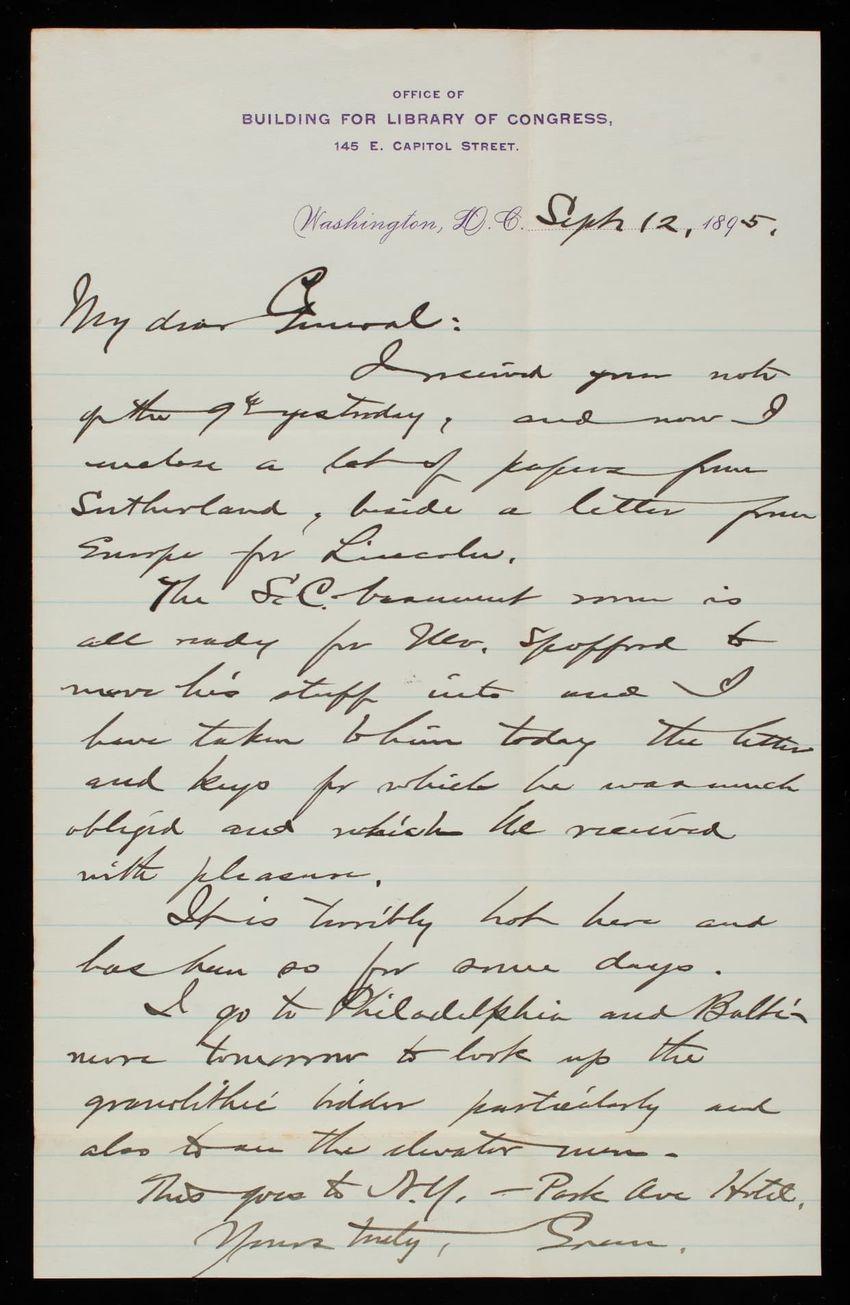 OFFICE OF
BUILDING FOR LIBRARY OF CONGRESS,
145 E. CAPITOL STREET.
Washington, D.C. Sept 12, 1895.
My dear General:
I received your note
of the 9th yesterday, and now I
enclose a lot of papers from
Sutherland, beside a letter from
Europe for Lincoln.
The S.C. basement room is
all ready for Mr. Spofford to
move his stuff into and I
have taken to him today the letter
and keys for which he was much
obliged and which he received
with pleasure.
It is terribly hot here and
has been so for some days.
I go to Philadelphia and Balti-
more tomorrow to look up the
granolithic bidder particularly and
also to see the elevator men.
This goes to N.Y. — Park Ave Hotel.
Yours truly, Green.